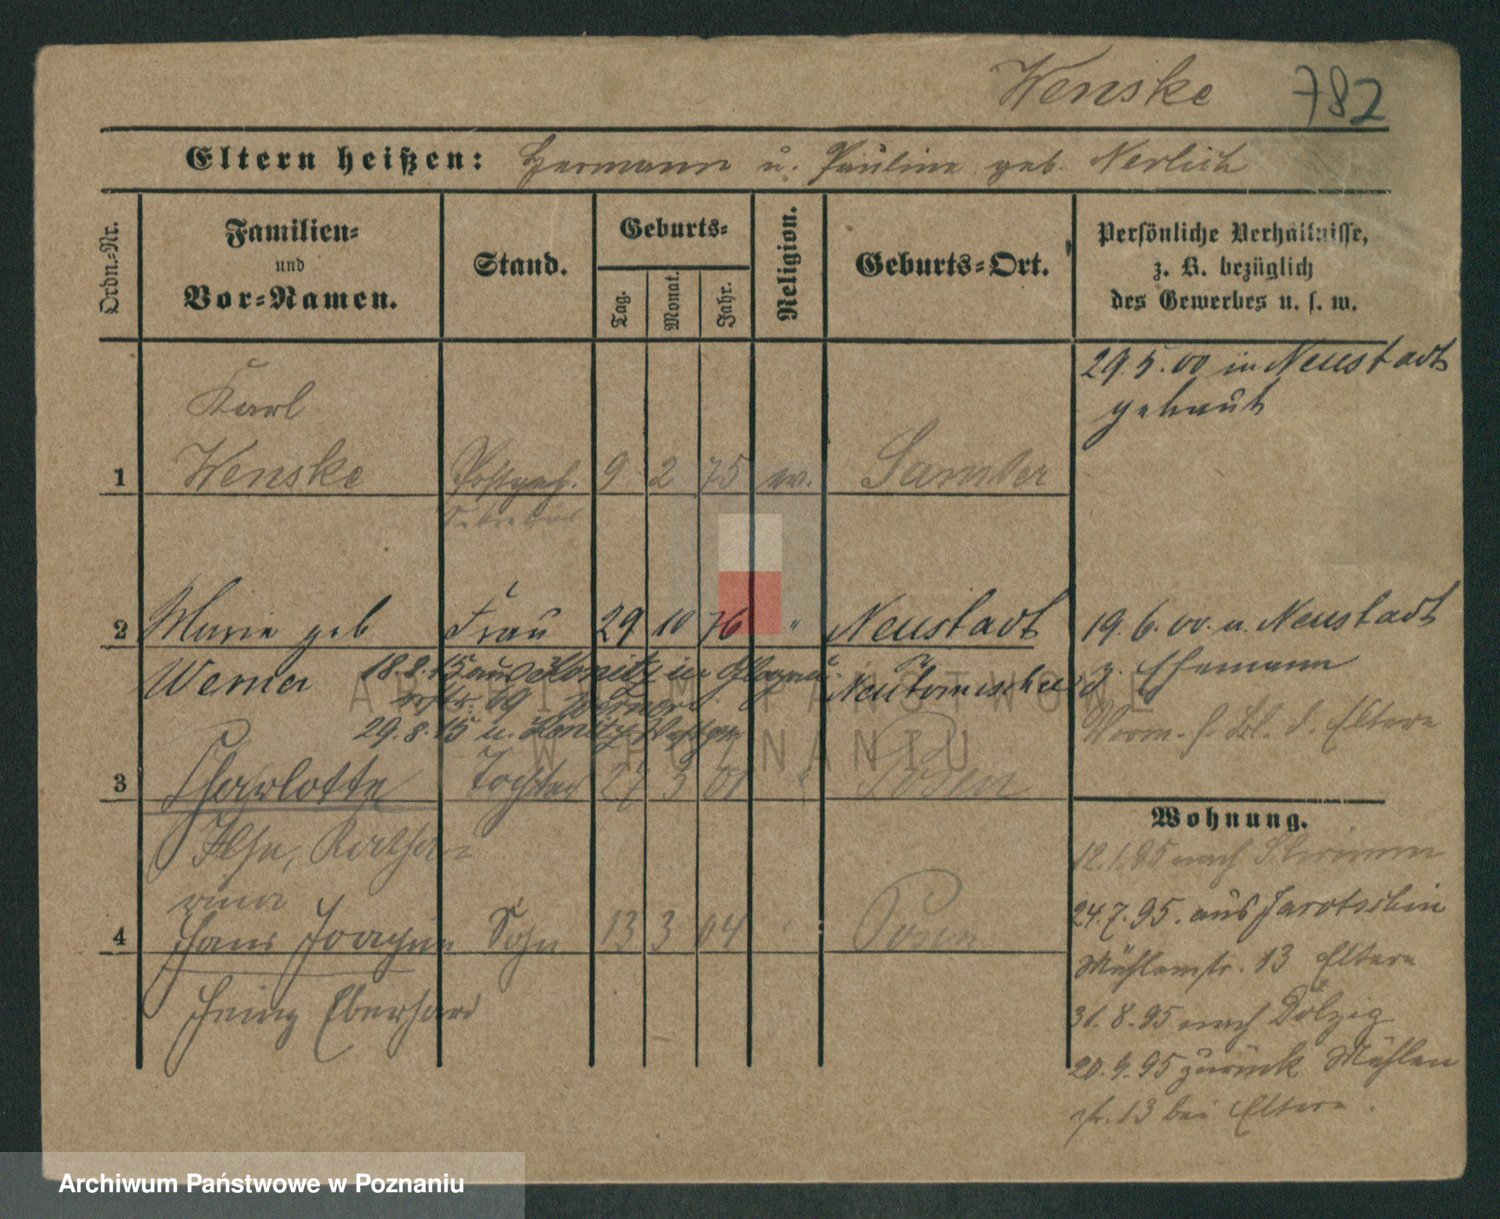 Wenske 782
Eltern heißen: Hermann u. Pauline geb. Nerlich
Ordn.-Nr.
Familien-
und
Vor-Namen.
Stand.
Geburts-
Tag.
Monat.
Jahr.
Religion.
Geburts-Ort.
Persönliche Verhältnisse,
z. B. bezüglich
des Gewerbes u. s. w.
29.5.00 in Neustadt
getraut
Karl
1 Wenske Postgeh. 9 2 75 ev. Samter
Sekretär
2 Marie geb Frau 29 10 76 " Neustadt
Werner
18.8.15 aus Konitz in Glogau
Neutomischel
29.8.15 u. Konitz
19.6.00 u. Neustadt
z. Ehemann
d. Eltern
3 Charlotte Tochter 27 3 01 Posen
Ilse, Katha-
rina
4 Hans Joachim Sohn 13 3 04 Posen
Heinz Eberhard
Wohnung.
12.1.95 nach Schrimm
24.7.95. aus Jarotschin
Mühlenstr. 13 Eltern
31.8.95 nach Dolzig
20.9.95 zurück Mühlen
str. 13 bei Eltern.
ARCHIWUM PAŃSTWOWE
W POZNANIU
Archiwum Państwowe w Poznaniu